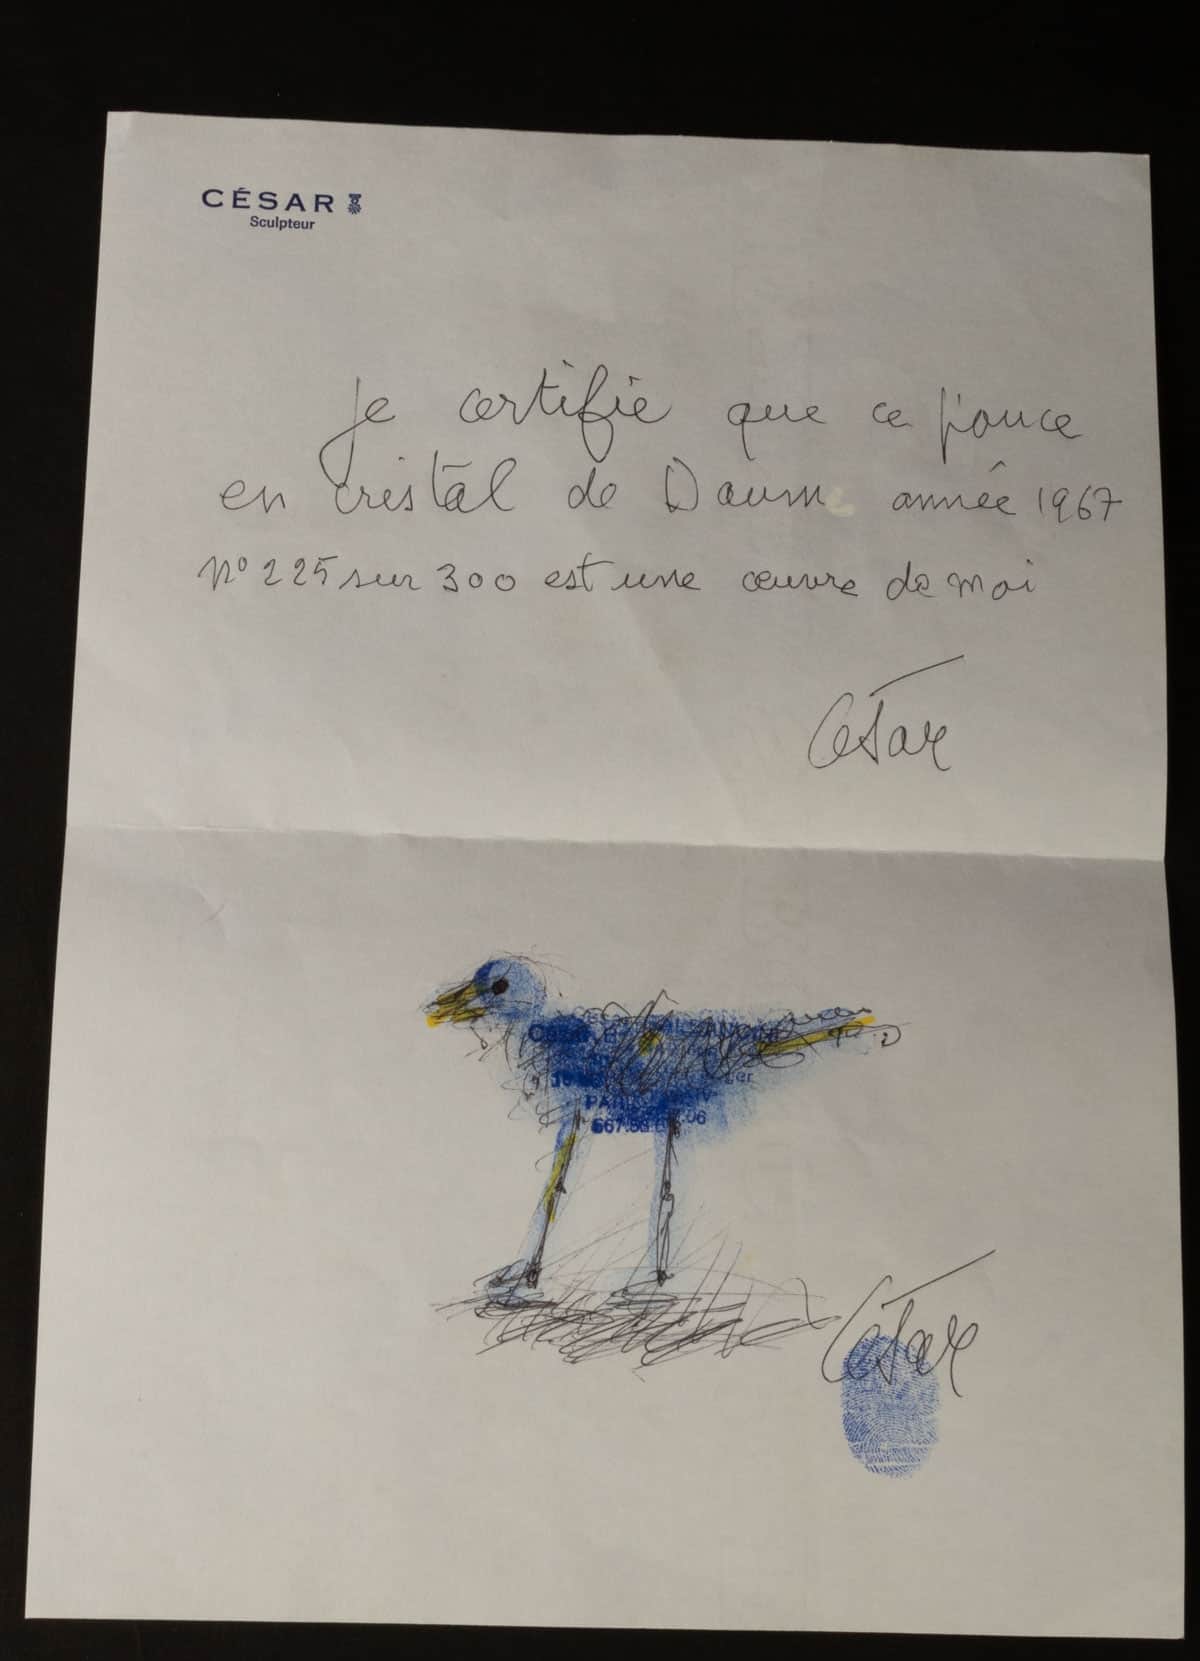 CÉSAR
Sculpteur
Je certifie que ce pouce
en cristal de Daum année 1967
N° 225 sur 300 est une œuvre de moi
César
PARIS
César